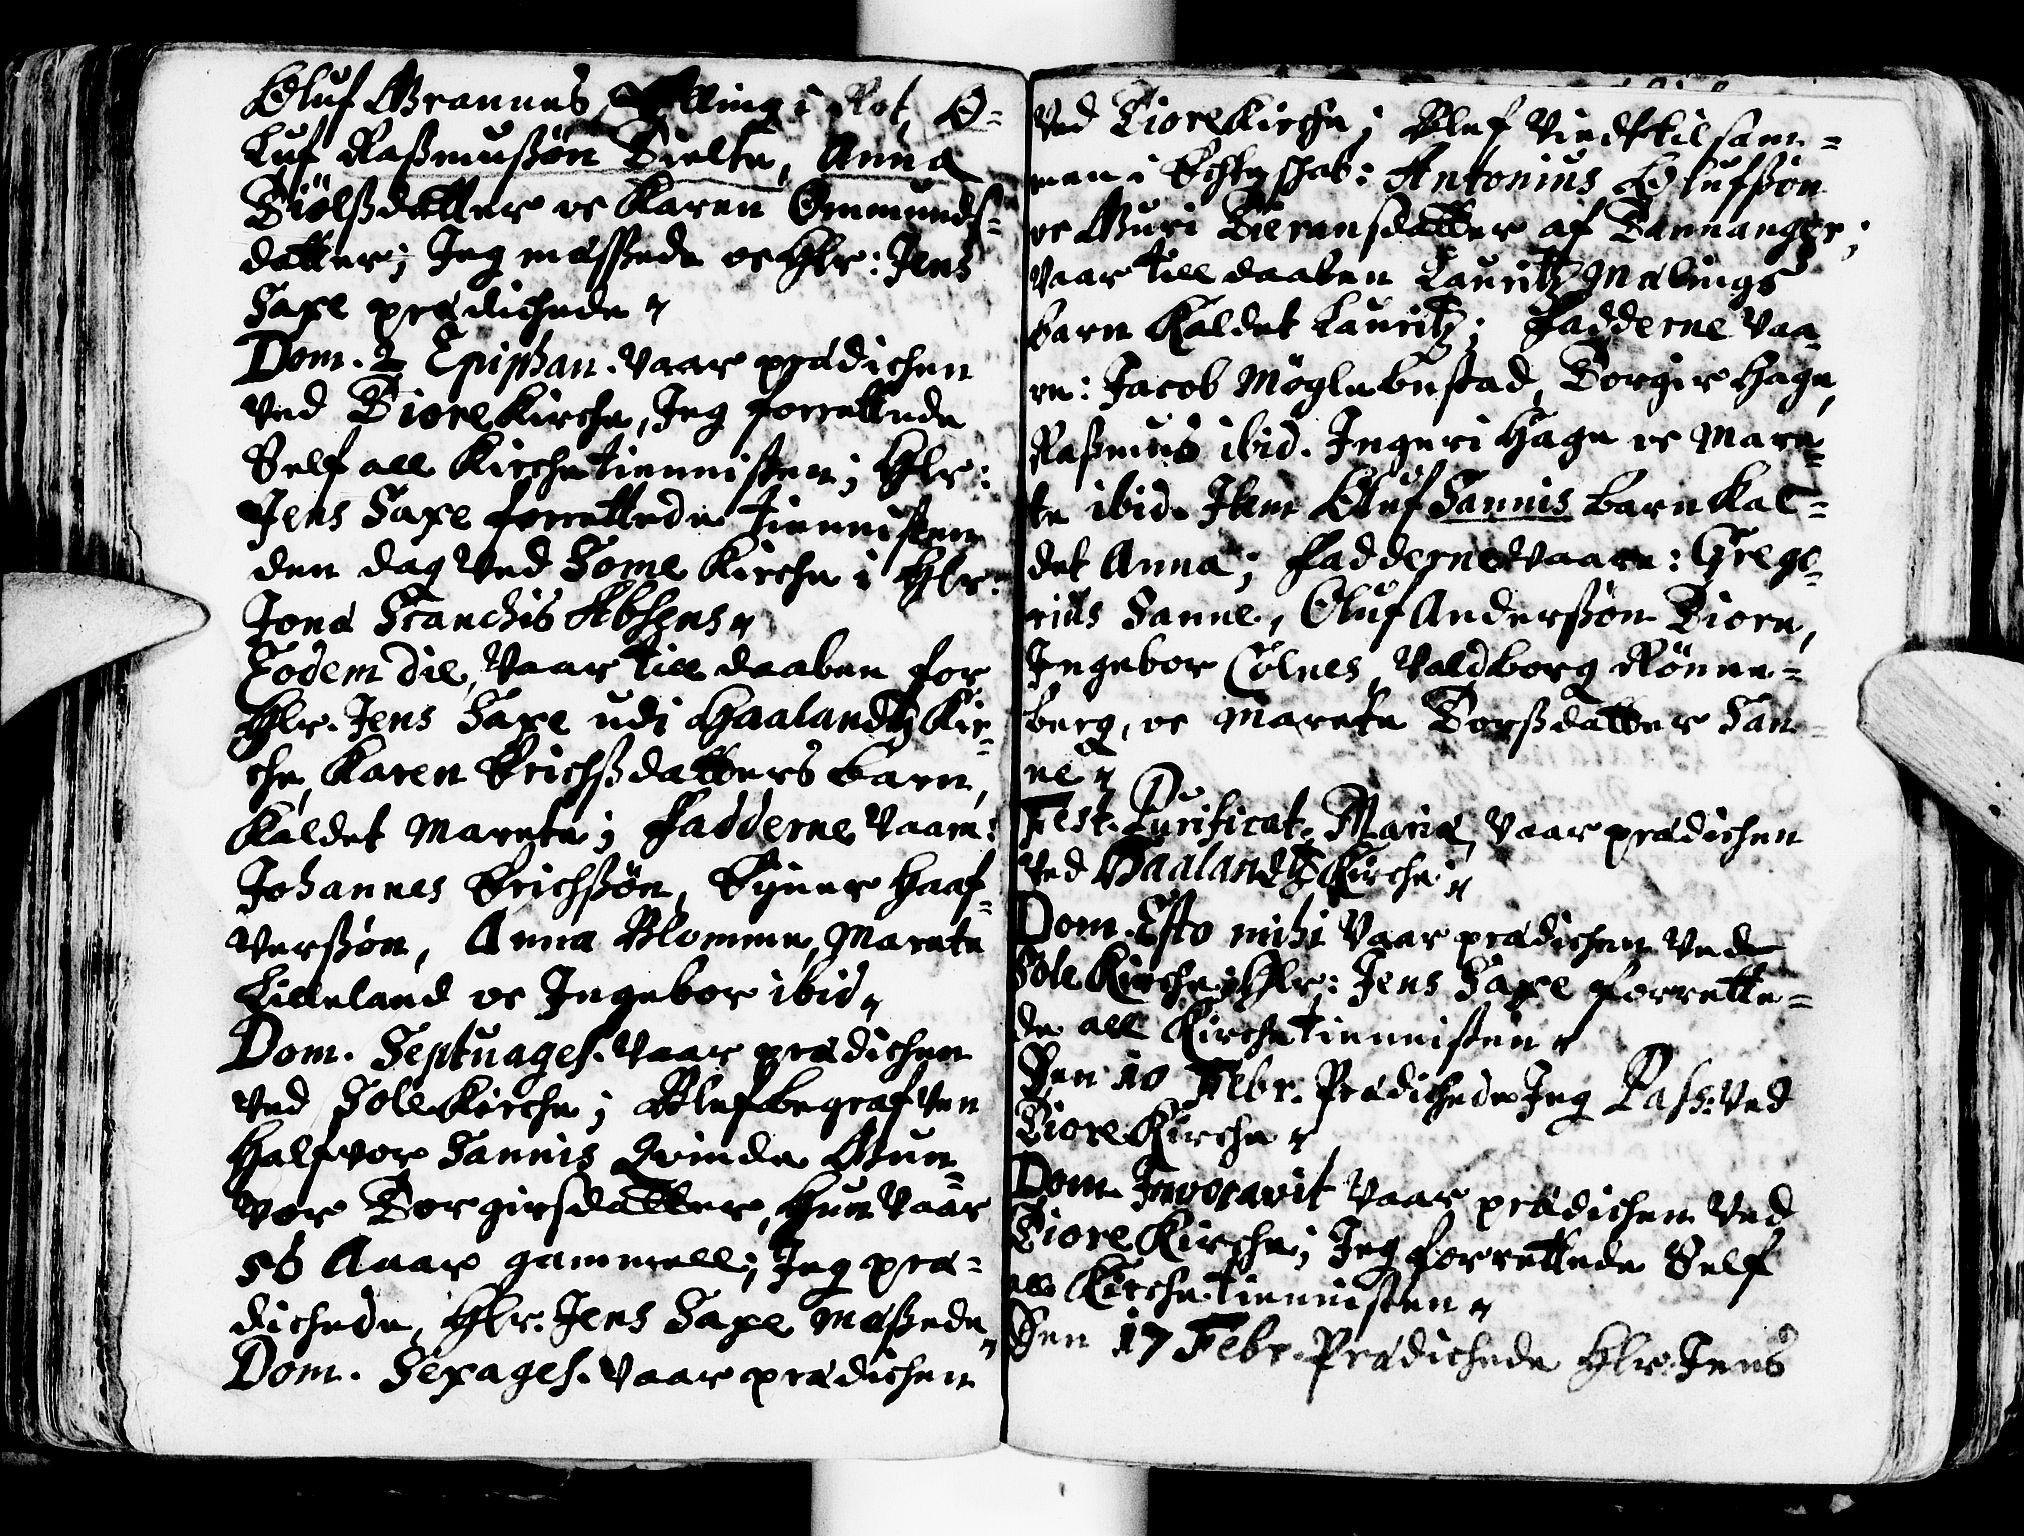 Oluf Grannes, Elling i Rot, O-
luf Raßmußøn Tielte, Anna
Tiølßdatter oc Karen Ommunds-
datter; Jeg messede oc Hlr: Jens
Saxe prædichede
Dom. 2 Epiphan. vaar prædichen
ved Tiore Kirche, Jeg forrettede
Self all Kirchetiennisten; Hlr:
Jens Saxe forrettede tiennisten
den dag ved Some Kirche i Hlr:
Jona Stanchis Absens
Eodem die, vaar till daaben for
Hlr. Jens Saxe udi Haalandtz Kir-
che, Karen Erichßdatters barn,
Kaldet Marete; Fadderne vaare:
Johannes Erichßøn, Eyner Haaf-
verßøn, Anna Blomme, Marete
Lilleland oc Ingebor ibid
Dom. Septuages. vaar prædichen
ved Sole Kirche; Blef begrafven
Halfvor Sannis Qvinde Gun-
vor Borgirsdatter, Hun vaar
56 Aaar gammell; Jeg præ-
dichede, Hlr. Jens Saxe meßede
Dom. Sexages. vaar prædichen
ved Tiore Kirche; Blef viedt til sam-
men i Echteschab: Antonius Olufßøn
oc Guri Tieransdatter af Tannanger;
vaar till daaben Lauritz Mælings
barn Kaldet Lauritz; Fadderne vaa-
re: Jacob Møglebustad, Borgir Hage,
Raßmus ibid. Ingeri Hage oc Mare-
te ibid. Item Oluf Sannis barn Kal-
det Anna; Fadderne vaare: Grego-
rius Sanne, Oluf Anderßøn Tiore,
Ingebor Cølnes, Valdborg Rønne-
berg, oc Marete Torßdatter San-
ne
Fest. Purificat. Mariæ, vaar prædichen
ved Haalandtz Kirche
Dom. Esto mihi vaar prædichen ved
Sole Kirche; Hlr: Jens Saxe forrette-
de all Kirchetiennisten
Den 10 Febr. Prædichede Jeg Pass. ved
Tiore Kirche
Dom. Invocavit vaar prædichen ved
Tiore Kirche; Jeg forrettede Self
all Kirchetiennisten
Den 17 Febr. Prædichede Hlr. Jens